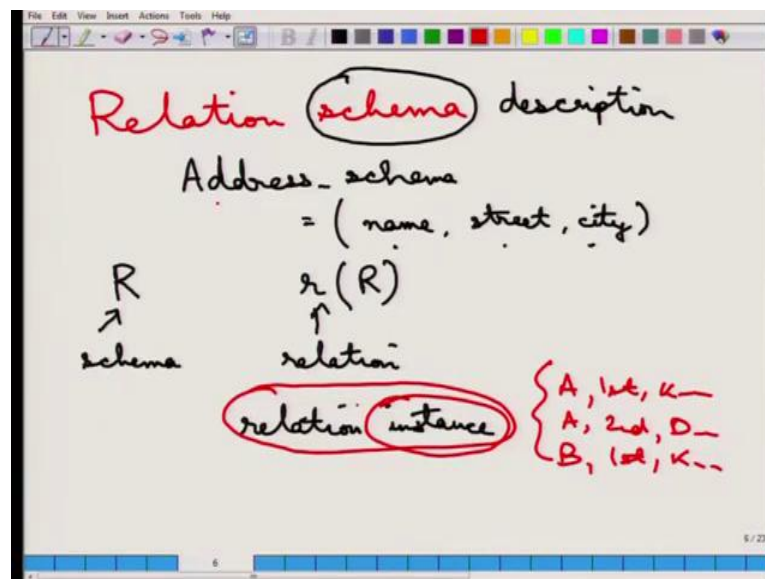 File Edit View Insert Actions Tools Help
B I
Relation schema description
Address_schema
= ( name, street, city )
R r(R)
schema relation
relation instance
A, 1st, K
A, 2nd, D
B, 1st, K
6
6 / 23